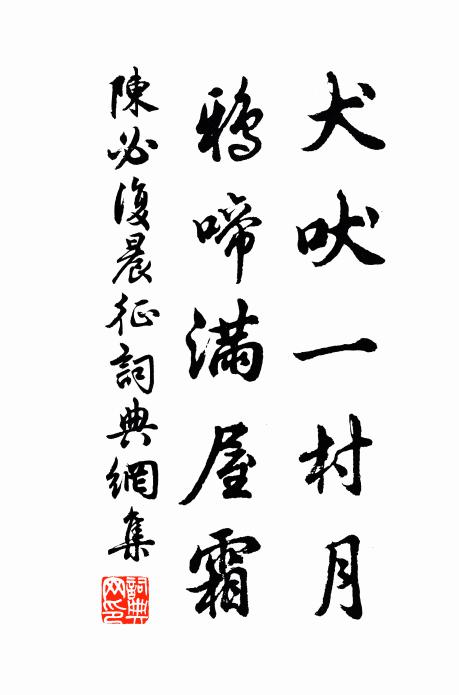 犬吠一村月
鴉啼満屋霜
陳必復晨征詞典網集
詞典網印